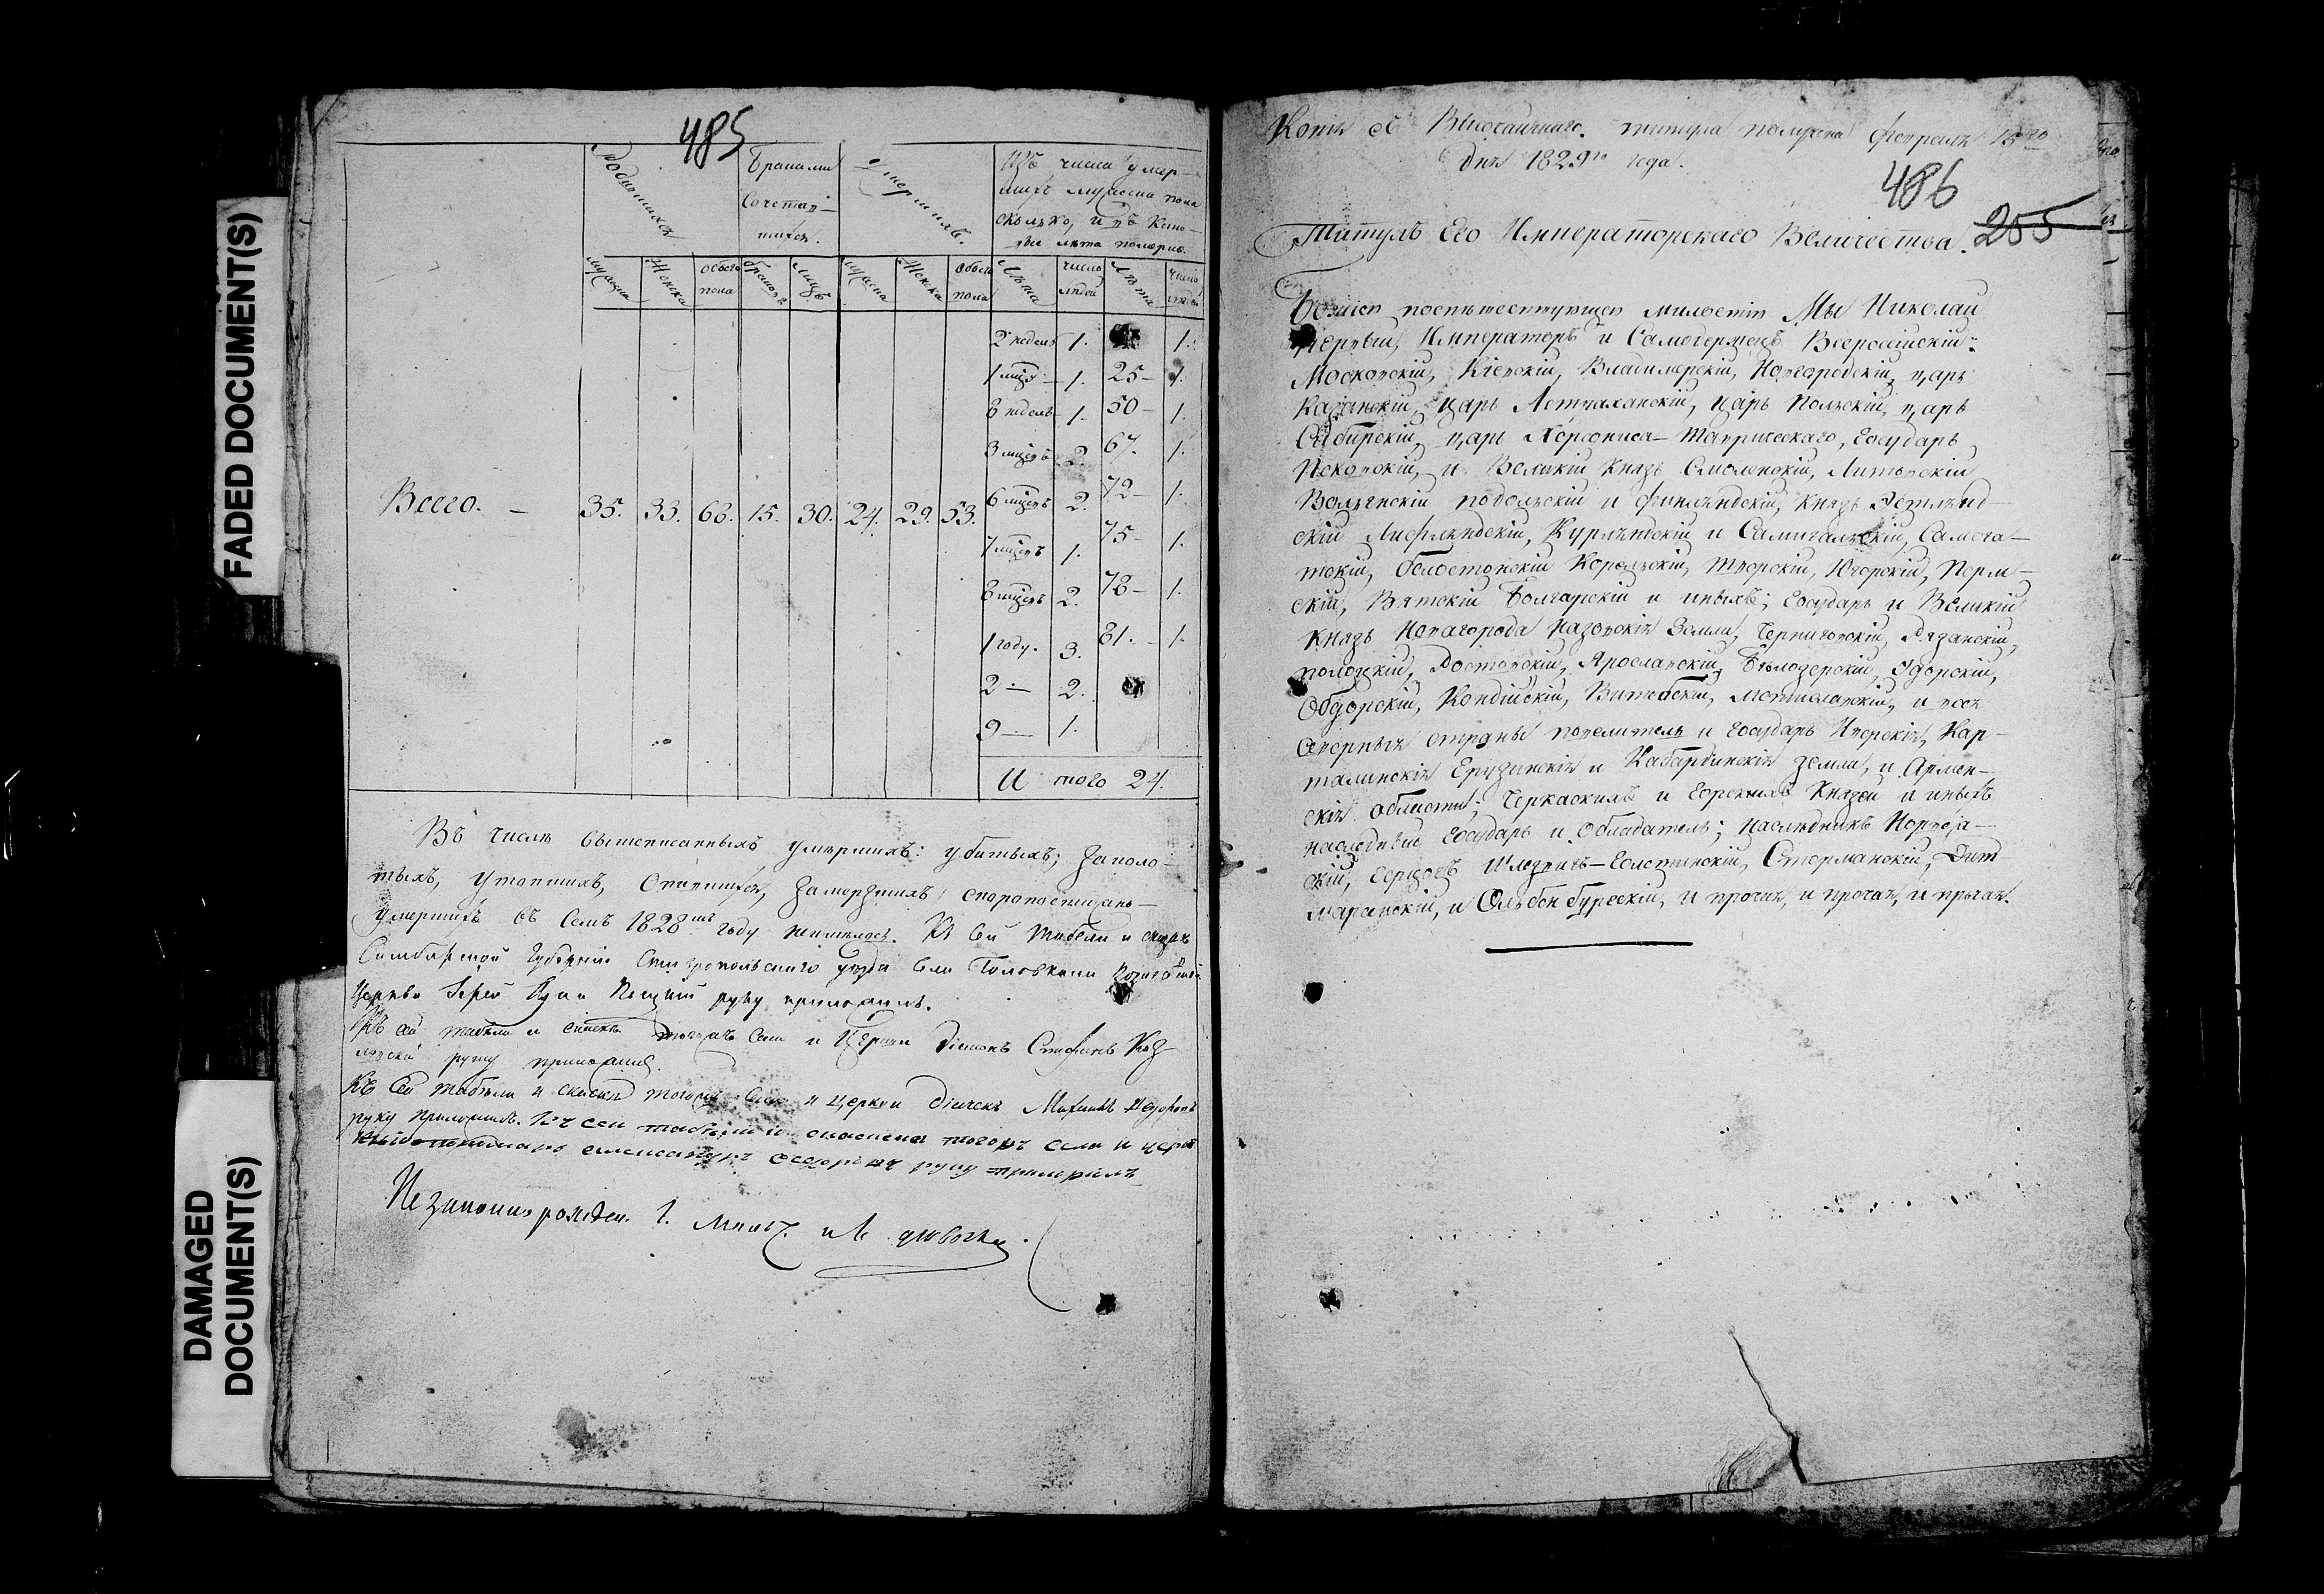 FADED DOCUMENT(S)
DAMAGED
DOCUMENT(S)
485
Родившихся
Браками
Сочетав-
шихся.
Умершихъ.
Изъ числа умер-
шихъ мужеска пола
сколько, и въ кико-
лѣта померло.
мужеска
Женска
обоего
пола
браковъ
лицъ
мужеска
Женска
обоего
пола
Лѣта
число
людей
Лѣта
число
людей
2 недель 1. 1.
1 мцъ - 1. 25 - 1.
8 недель - 1. 50 - 1.
3 мцевъ 2. 67. 1.
Всего. - 35. 33. 68. 15. 30. 24. 29. 53.
6 мцевъ 2. 72 - 1.
7 мцевъ 1. 75 - 1.
8 мцевъ 2. 78 - 1.
1 году. 3. 81. - 1.
2 - 2.
9 - 1.
И того 24.
Въ числѣ вышеписанныхъ умершихъ: убитыхъ; заколо-
тыхъ, утопшихъ, опившихся, замерзшихъ скоропостижно
умершихъ въ семъ 1828мъ году неимелось. Къ сей табели и
Симбирской Губернии Ставропольскаго уезда села
Церкви Іерей руку приложилъ.
Къ сей табели и тогожъ села и Церкви Діаконъ Стефанъ Коз-
ловской руку приложилъ.
Къ сей табели и тогожъ села и церкви дьячекъ Михаилъ Федоровъ
руку приложилъ. Къ сей табели и тогожъ села и церкви
руку приложилъ
Незаконно рожден. 1. мальч. и 1. девочка.
Копія съ Высочайшаго титула полученна февраля 15го
дня 1829го года.
486
255
Титулъ Его Императорскаго Величества.
Божіею поспѣшествующею милостію Мы Николай
первый, Императоръ и Самодержецъ Всероссійскій:
Московскій, Кіевскій, Владимерскій, Новгородскій, царь
Казанскій, царь Астраханскій, царь Польскій, царь
Сибирскій, царь Херсониса-Таврическаго, Государь
Псковскій, и Великій Князь Смоленскій, Литовскій
Волынскій подольскій и финляндскій, князь Эстлянд-
скій Лифляндскій, Курляндскій и Самигальскій, Самога-
тскій, белостокскій Корельскій, тверскій, Югорскій, Перм-
скій, Вятскій Болгарскій и иныхъ; Государь и Великій
Князь Новагорода Назовскія Земли, Черниговскій, Рязанскій,
полоцкій, Ростовскій, Ярославскій, Бѣлозерскій, Удорскій,
Обдорскій, Кондійскій, Витебскій, Мстиславскій, и всея
северныя страны повелитель и Государь Иверскія, Кар-
талинскія Грузинскія и Кабардинскія земли, и Армен-
скія области; Черкаскихъ и Горскихъ Князей и иныхъ
наследный Государь и Обладатель; наследникъ Норвеж-
скій, Герцогъ Шлезвигъ-Голстинскій, Сторманскій, Дит-
марсвскій, и Ольденбургскій, и прочая, и прочая, и прочая.